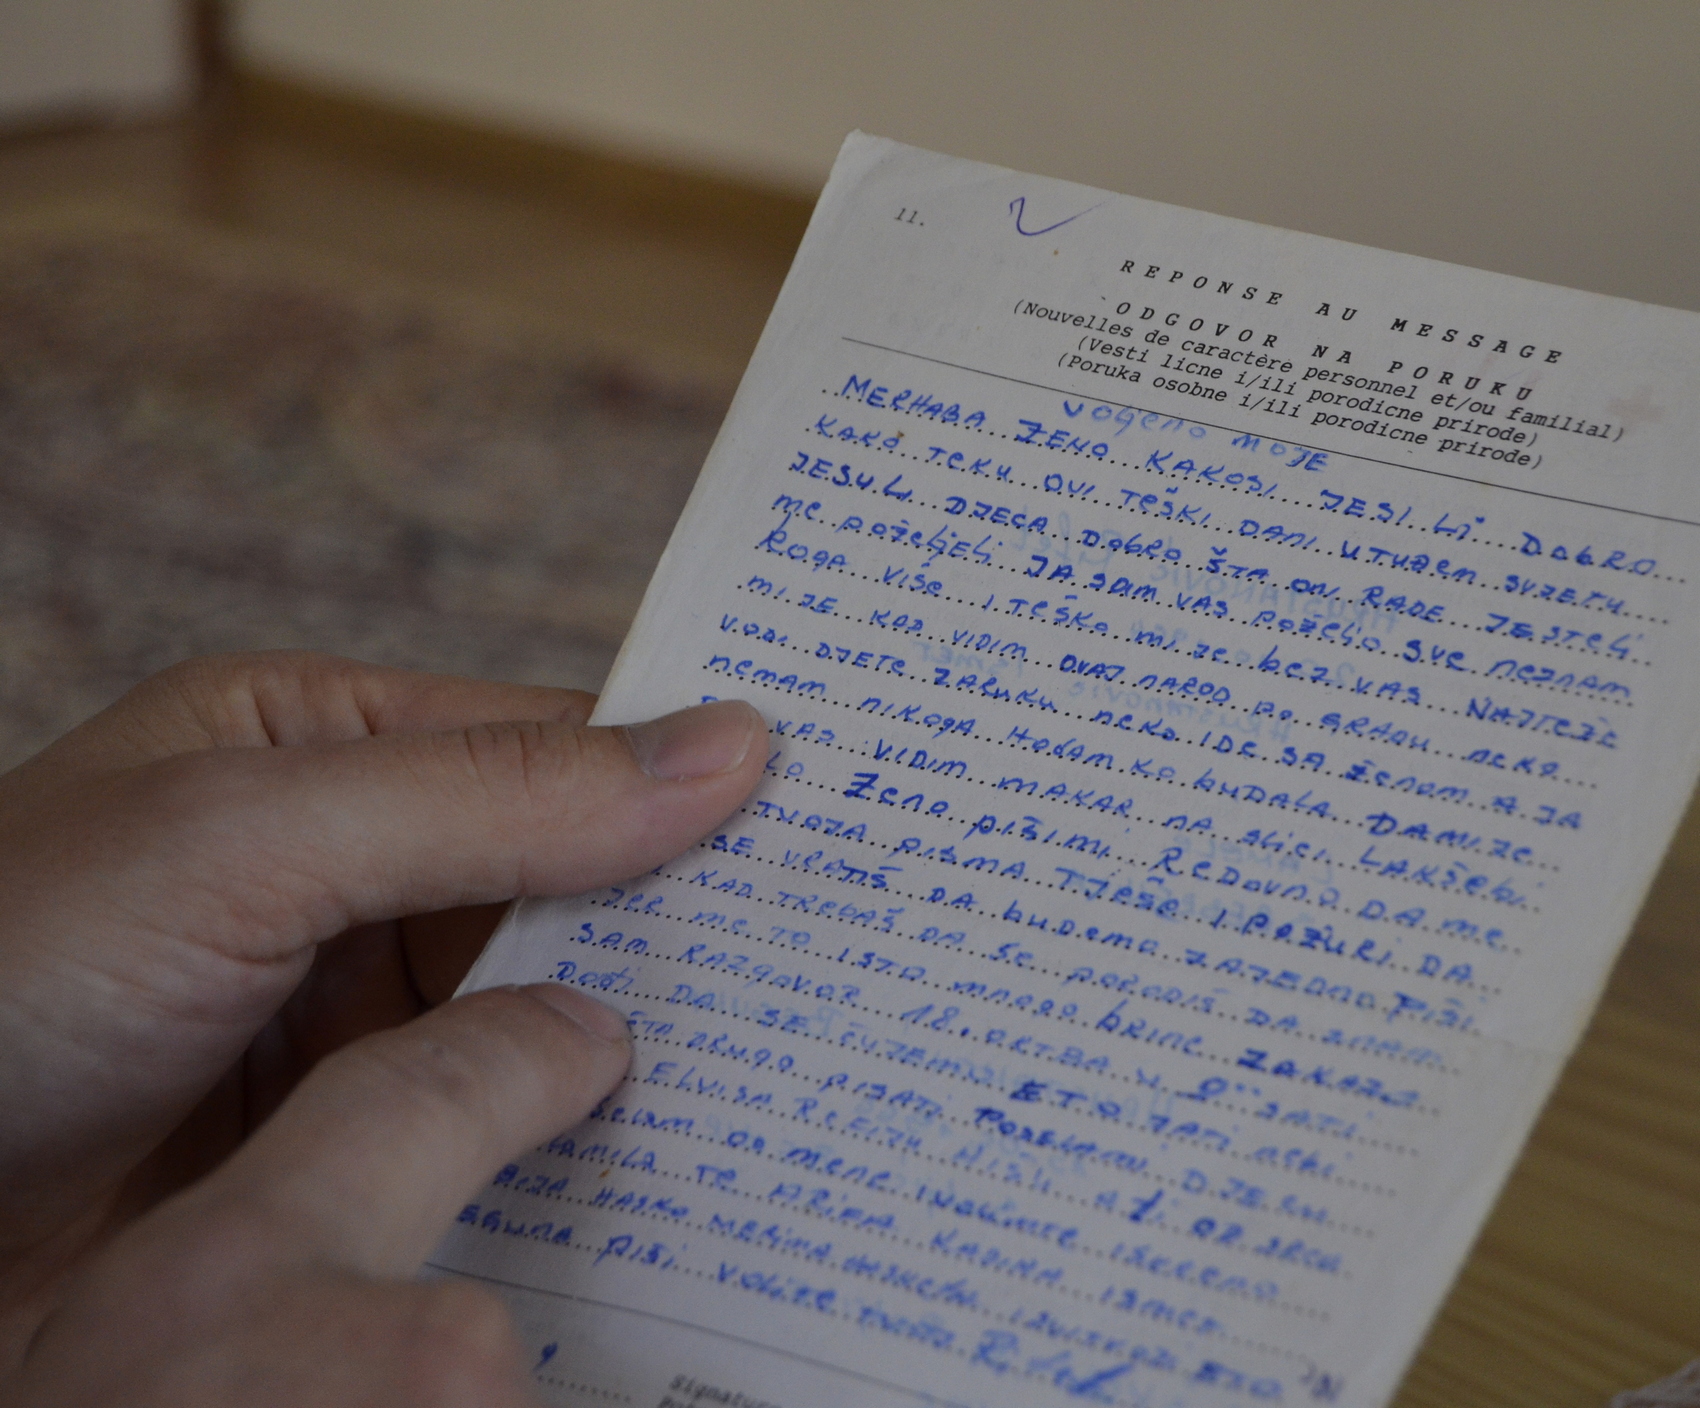 11.
REPONSE AU MESSAGE
ODGOVOR NA PORUKU
(Nouvelles de caractère personnel et/ou familial)
(Vesti licne i/ili porodicne prirode)
(Poruka osobne i/ili porodicne prirode)
VOGENO MOJE
MERHABA ŽENO KAKOSI JESI LI DOBRO
KAKO TEKU OVI TEŠKI DANI UTUĐEM SVJETU
JESULI DJECA DOBRO ŠTA ONI RADE JESTELI
ME POŽELJELI JA SAM VAS POŽELJO SVE NEZNAM
KOGA VIŠE I TEŠKO MI JE BEZ VAS NAJTEŽE
MI JE KAD VIDIM OVAJ NAROD PO GRADU NEKO
VODI DJETE ZARUKU NEKO IDE SA ŽENOM A JA
NEMAM NIKOGA HODAM KO BUDALA DAMIJE
VAS VIDIM MAKAR NA SLICI LAKŠEBI
LO ŽENO PIŠIMI REDOVNO DA ME
TVOJA PISMA TJEŠE I POŽURI DA
SE VRATIŠ DA BUDEMO ZAJEDNO PIŠI
KAD TREBAŠ DA SE PORODIŠ DA ZNAM
JER ME TO ISTO MNOGO BRINE ZAKAZO
SAM RAZGOVOR 18. OKTBA U SATI
DOĐI DA SE ČUJEMO ETO JATI NEKU
ŠTA DRUGO PISATI POSELAMI DJECU
ELVISA REFIJU HISU OD SRCA
SELAM OD MENE ISKRENO
TE ARIFA KADIRA ISMET
HASKO MERIMA ETO
PIŠI VOLITE TVOJ
Signature